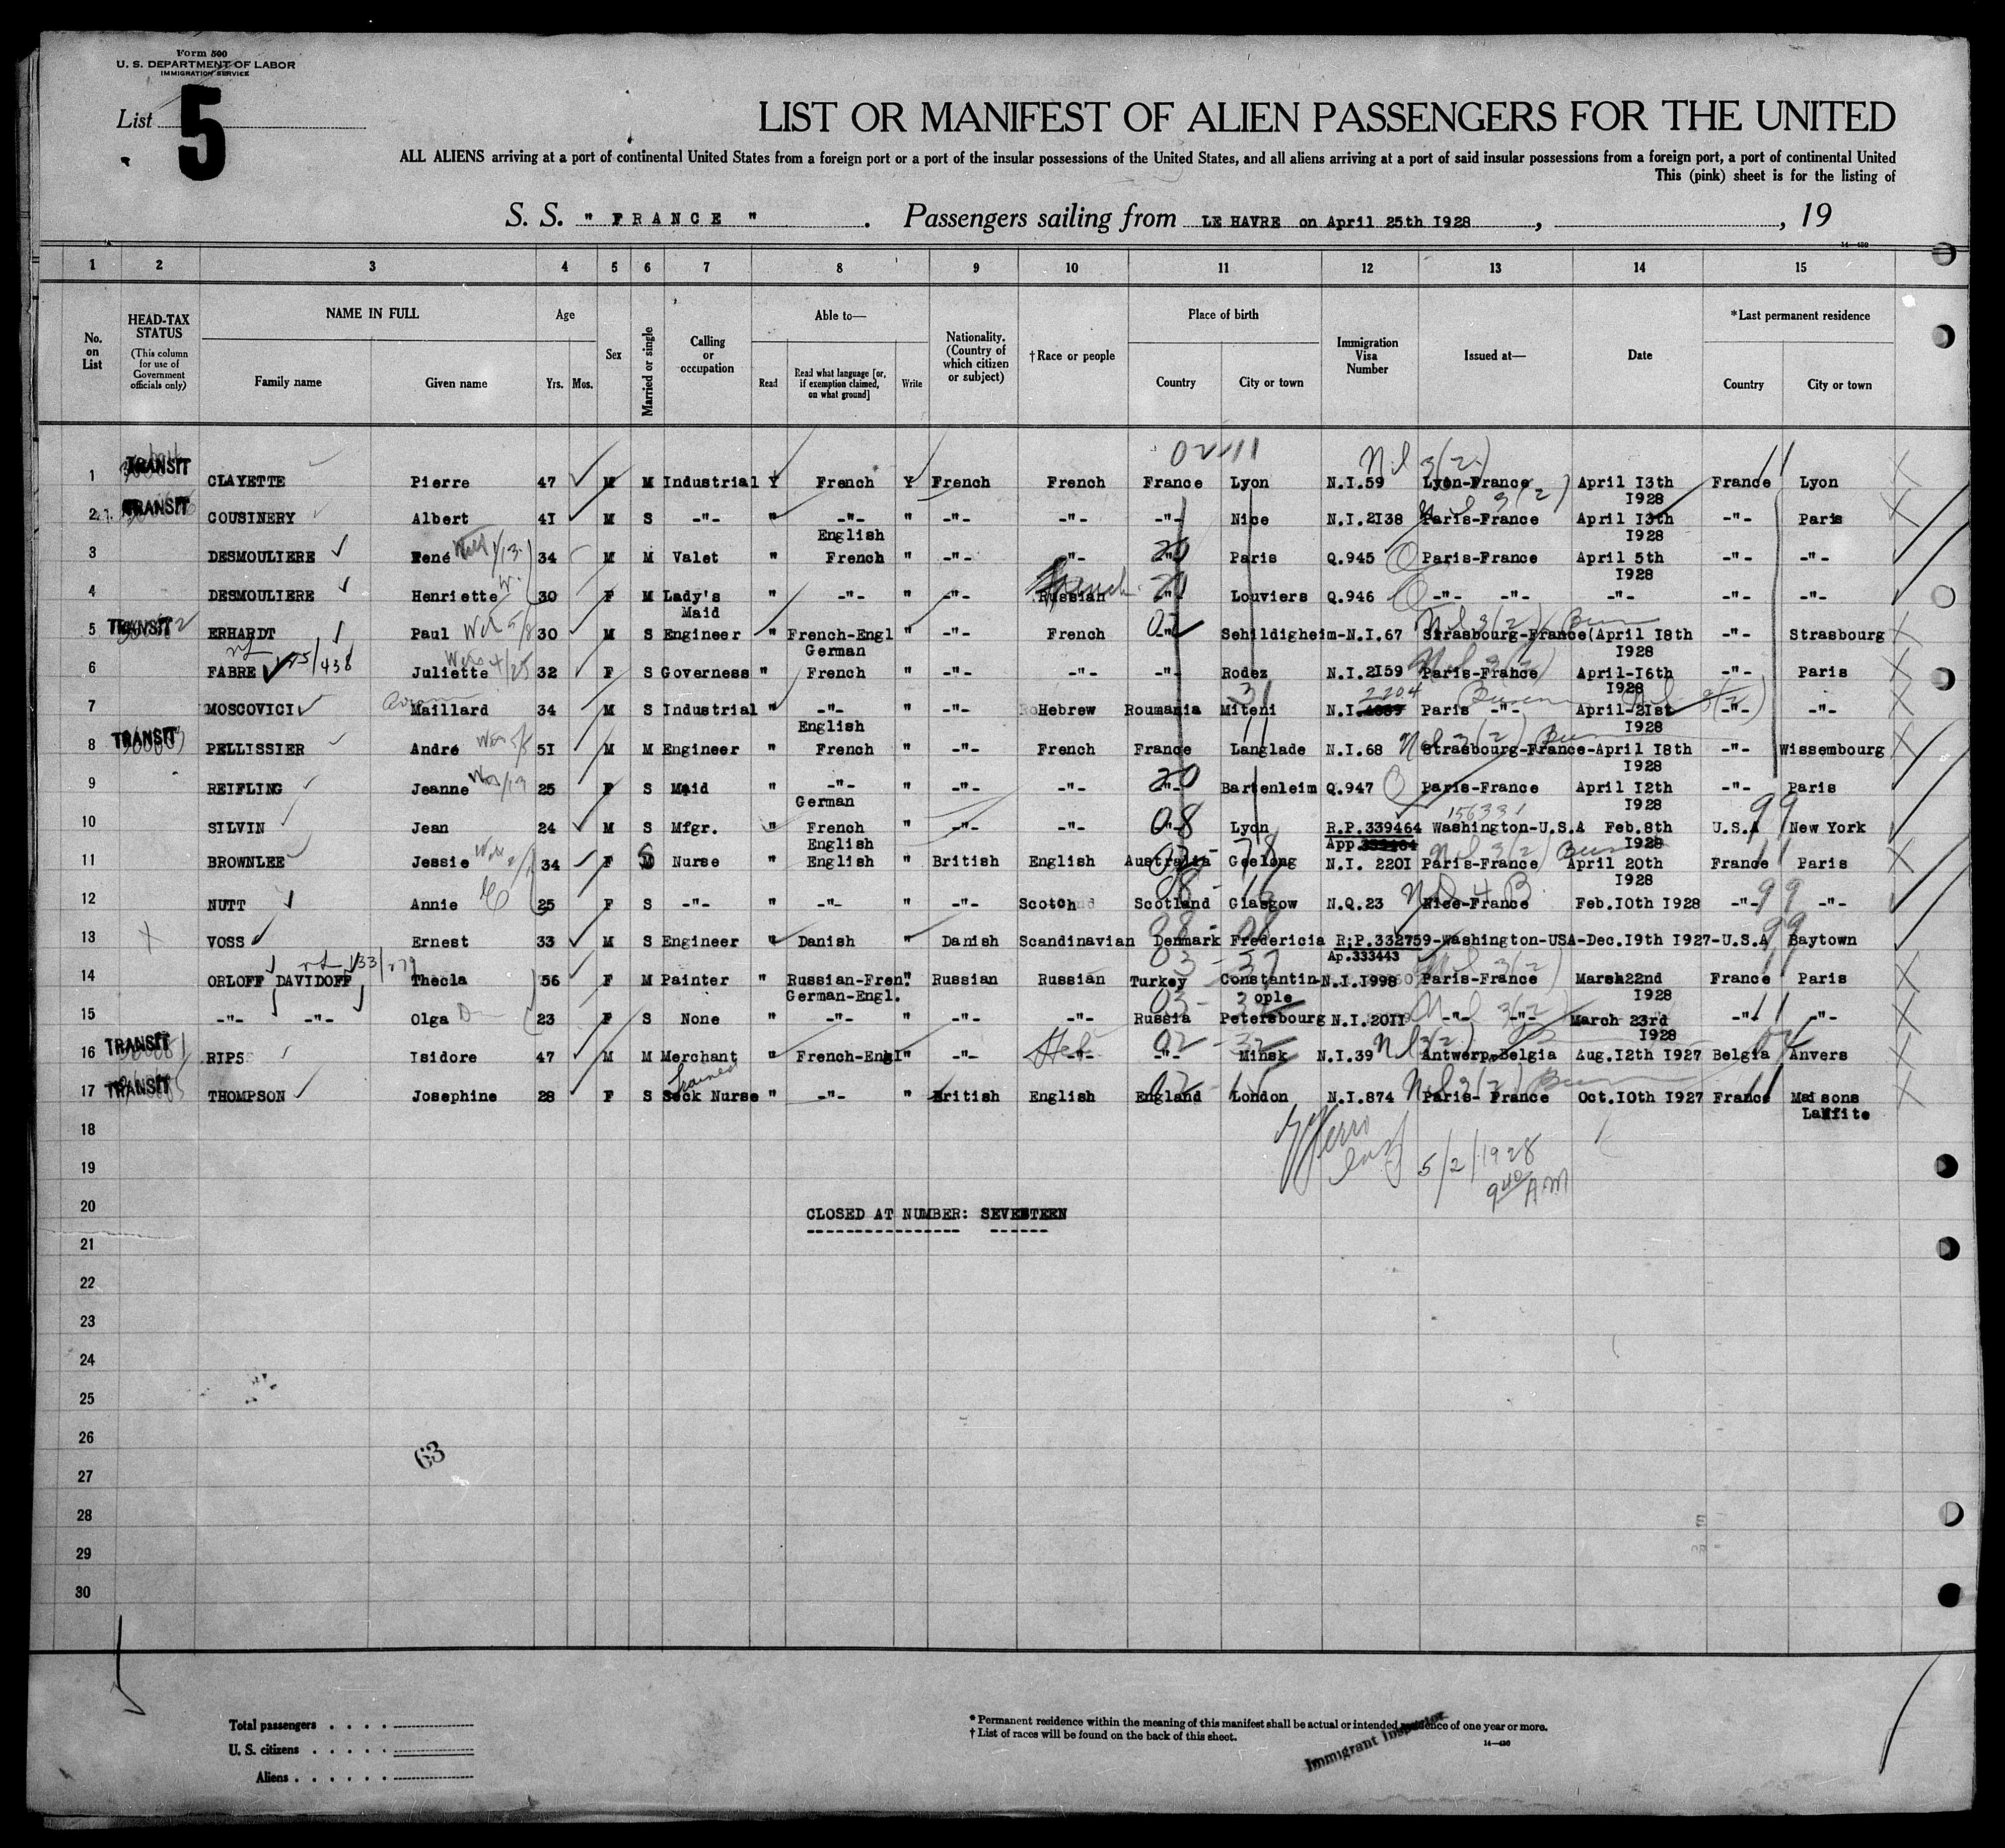 Form 500
U. S. DEPARTMENT OF LABOR
IMMIGRATION SERVICE
List 5
LIST OR MANIFEST OF ALIEN PASSENGERS FOR THE UNITED
ALL ALIENS arriving at a port of continental United States from a foreign port or a port of the insular possessions of the United States, and all aliens arriving at a port of said insular possessions from a foreign port, a port of continental United
This (pink) sheet is for the listing of
S. S. " FRANCE " . Passengers sailing from LE HAVRE on April 25th I928 , , 19
14—430
1 2 3 4 5 6 7 8 9 10 11 12 13 14 15
No. on List
HEAD-TAX STATUS (This column for use of Government officials only)
NAME IN FULL Family name Given name
Age Yrs. Mos.
Sex
Married or single
Calling or occupation
Able to— Read Read what language [or, if exemption claimed, on what ground] Write
Nationality. (Country of which citizen or subject)
†Race or people
Place of birth Country City or town
Immigration Visa Number
Issued at—
Date
*Last permanent residence Country City or town
02 11
1 TRANSIT CLAYETTE Pierre 47 M M Industrial Y French Y French French France Lyon N.I.59 Lyon-France April I3th France Lyon
I928
2 TRANSIT COUSINERY Albert 4I M S -"- " -"- " -"- -"- -"- Nice N.I.2I38 Paris-France April I3th -"- Paris
English I928
3 DESMOULIERE René 34 M M Valet " French " -"- -"- -"- 20 Paris Q.945 Paris-France April 5th -"- -"-
I928
4 DESMOULIERE Henriette 30 F M Lady's " -"- " -"- Russian French -"- Louviers Q.946 -"- -"- -"- -"- -"-
Maid
5 TRANSIT ERHARDT Paul 30 M S Engineer " French-Engl " -"- French -"- Sehildigheim-N.I.67 Strasbourg-France(April I8th -"- Strasbourg
German I928
6 FABRE Juliette 32 F S Governess " French " -"- -"- -"- Rodez N.I.2I59 Paris-France April-I6th -"- Paris
I928
2204
7 MOSCOVICI Maillard 34 M S Industrial " -"- " -"- Hebrew Roumania Miteni N.I. Paris -"- April-2Ist -"- -"-
English I928
8 TRANSIT PELLISSIER André 5I M M Engineer " French " -"- French France Langlade N.I.68 Strasbourg-France-April I8th -"- Wissembourg
I928
9 REIFLING Jeanne 25 F S Maid " -"- " -"- -"- -"- 20 Bartenleim Q.947 Paris-France April I2th -"- Paris
German I928
10 SILVIN Jean 24 M S Mfgr. " French " -"- -"- -"- 08 Lyon R.P.339464 Washington-U.S.A Feb.8th U.S.A 99 New York
English App. I928
11 BROWNLEE Jessie 34 F S Nurse " English " British English Australia Geelong N.I. 220I Paris-France April 20th France Paris
I928
12 NUTT Annie 25 F S -"- " -"- " -"- Scotch Scotland Glasgow N.Q.23 Nice-France Feb.I0th I928 -"- 99 -"-
13 VOSS Ernest 33 M S Engineer " Danish " Danish Scandinavian Denmark Fredericia R;P.332759-Washington-USA-Dec.I9th I927-U.S.A 99 Baytown
Ap.333443
14 ORLOFF DAVIDOFF Thecla 56 F M Painter " Russian-Fren. " Russian Russian Turkey Constantin- N.I.I998 Paris-France March22nd France Paris
German-Engl. ople I928
15 -"- -"- Olga 23 F S None " -"- " -"- -"- Russia Petersbourg N.I.20II -"- -"- March 23rd -"- -"-
I928
16 TRANSIT RIPS Isidore 47 M M Merchant " French-Engl " -"- -"- -"- Minsk N.I.39 Antwerp-Belgia Aug.I2th I927 Belgia Anvers
Trained
17 TRANSIT THOMPSON Josephine 28 F S Sock Nurse " -"- " British English England London N.I.874 Paris- France Oct.I0th I927 France Maisons
Laffite
18
5/2/1928
19
9 40 AM
20
CLOSED AT NUMBER: SEVENTEEN
21
22
23
24
25
26
63
27
28
29
30
Total passengers . . . .
U. S. citizens . . . . .
Aliens . . . . . .
* Permanent residence within the meaning of this manifest shall be actual or intended residence of one year or more.
† List of races will be found on the back of this sheet.
14—430
Immigrant Inspector